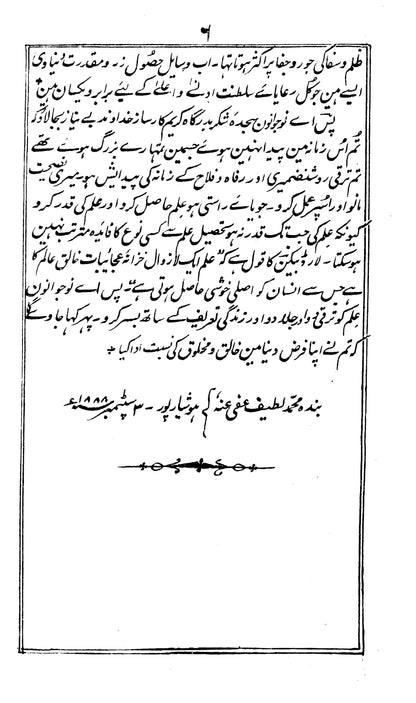 ۶
ظلم و سفاکی جور و جفا پر اکثر ہوتا تہا۔ اب وسایل حصول زر و مقدرت دنیاوی
ایسے ہین جو کل رعایاے سلطنت ادنےٰ و اعلےٰ کے لیے برابر و یکسان ہین*
پس اے نوجوانون سجدہ شکر بدرگاہ کریم کارساز خداوند بے نیاز بجا لاؤ کہ
تم اس زمانہ مین پیدا نہین ہوئے جسمین تمہارے بزرگ ہوے تھے
تم ترقی روشنضمیری اور رفاہ و فلاح کے زمانہ کی پیدایش ہو میری نصیحت
مانو اور اسپر عمل کرو۔ جویاے راستی ہو علم حاصل کرو اور علم کی قدر کرو
کیونکہ علم کی جب تک قدر نہ ہو تحصیل علم سے کسی نوع کا فائدہ مترتب نہین
ہو سکتا۔ لارڈ بیکن کا قول ہے کہ علم ایک لازوال خزانہ عجائبات خالق عالم کا
ہے جس سے انسان کو اصلی خوشی حاصل ہوتی ہے پس اے نوجوانون
علم کو ترقی دو اور جلا دو اور زندگی تعریف کے ساتھ بسر کرو۔ پہر کہا جاوے گا
کہ تم نے اپنا فرض دنیا مین خالق و مخلوق کی نسبت ادا کیا *
بندہ محمد لطیف عفی عنہ ہوشیارپور۔ ۳ ستمبر ۱۸۸۸ء